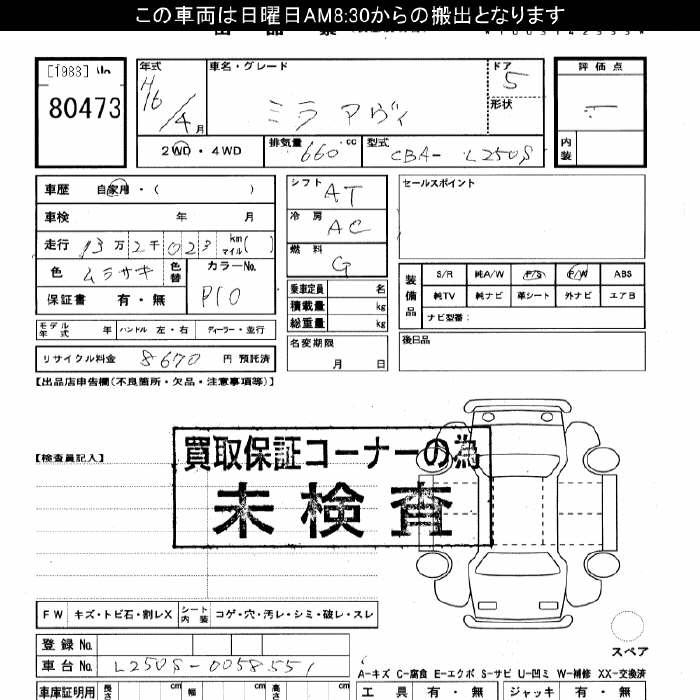 この車両は日曜日AM8:30からの搬出となります
[1983]
80473
年式 車名・グレード ドア 評価点
H16/4月 ミラ アヴィ 5
形状
2WD・4WD 排気量 660 cc 型式 CBA-L250S 内装
車歴 自家用・( )
車検 年 月
走行 13万2千023 km マイル( )
色 ムラサキ 色替 カラーNo. P10
保証書 有・無
モデル年式 年 ハンドル 左・右 ディーラー・並行
リサイクル料金 8670 円 預託済
シフト AT
冷房 AC
燃料 G
乗車定員 名
積載量 kg
総重量 kg
名変期限
月 日
セールスポイント
装備品 S/R 純A/W P/S P/W ABS
純TV 純ナビ 革シート 外ナビ エアB
ナビ型番:
後日品
【出品店申告欄(不良箇所・欠品・注意事項等)】
【検査員記入】
買取保証コーナーの為
未検査
FW キズ・トビ石・割レX シート内装 コゲ・穴・汚レ・シミ・破レ・スレ
スペア
登録No.
車台No. L250S-0058551
A-キズ C-腐食 E-エクボ S-サビ U-凹ミ W-補修 XX-交換済
車庫証明用 長さ cm 幅 cm 高さ cm
工具 有・無 ジャッキ 有・無